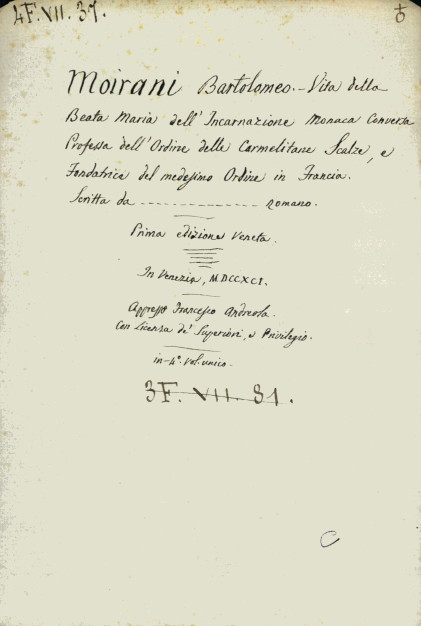 4F. VII. 37.
Moirani Bartolomeo. - Vita della
Beata Maria dell' Incarnazione Monaca Conversa
Professa dell' Ordine delle Carmelitane Scalze, e
Fondatrice del medesimo Ordine in Francia.
Scritta da - - - - - - - - - - - - - - romano.
Prima edizione Veneta.
In Venezia, MDCCXCI.
Appresso Francesco Andreola.
Con Licenza de' Superiori, e Privilegio.
in-4.° vol. unico.
3F. VII. 31.
C